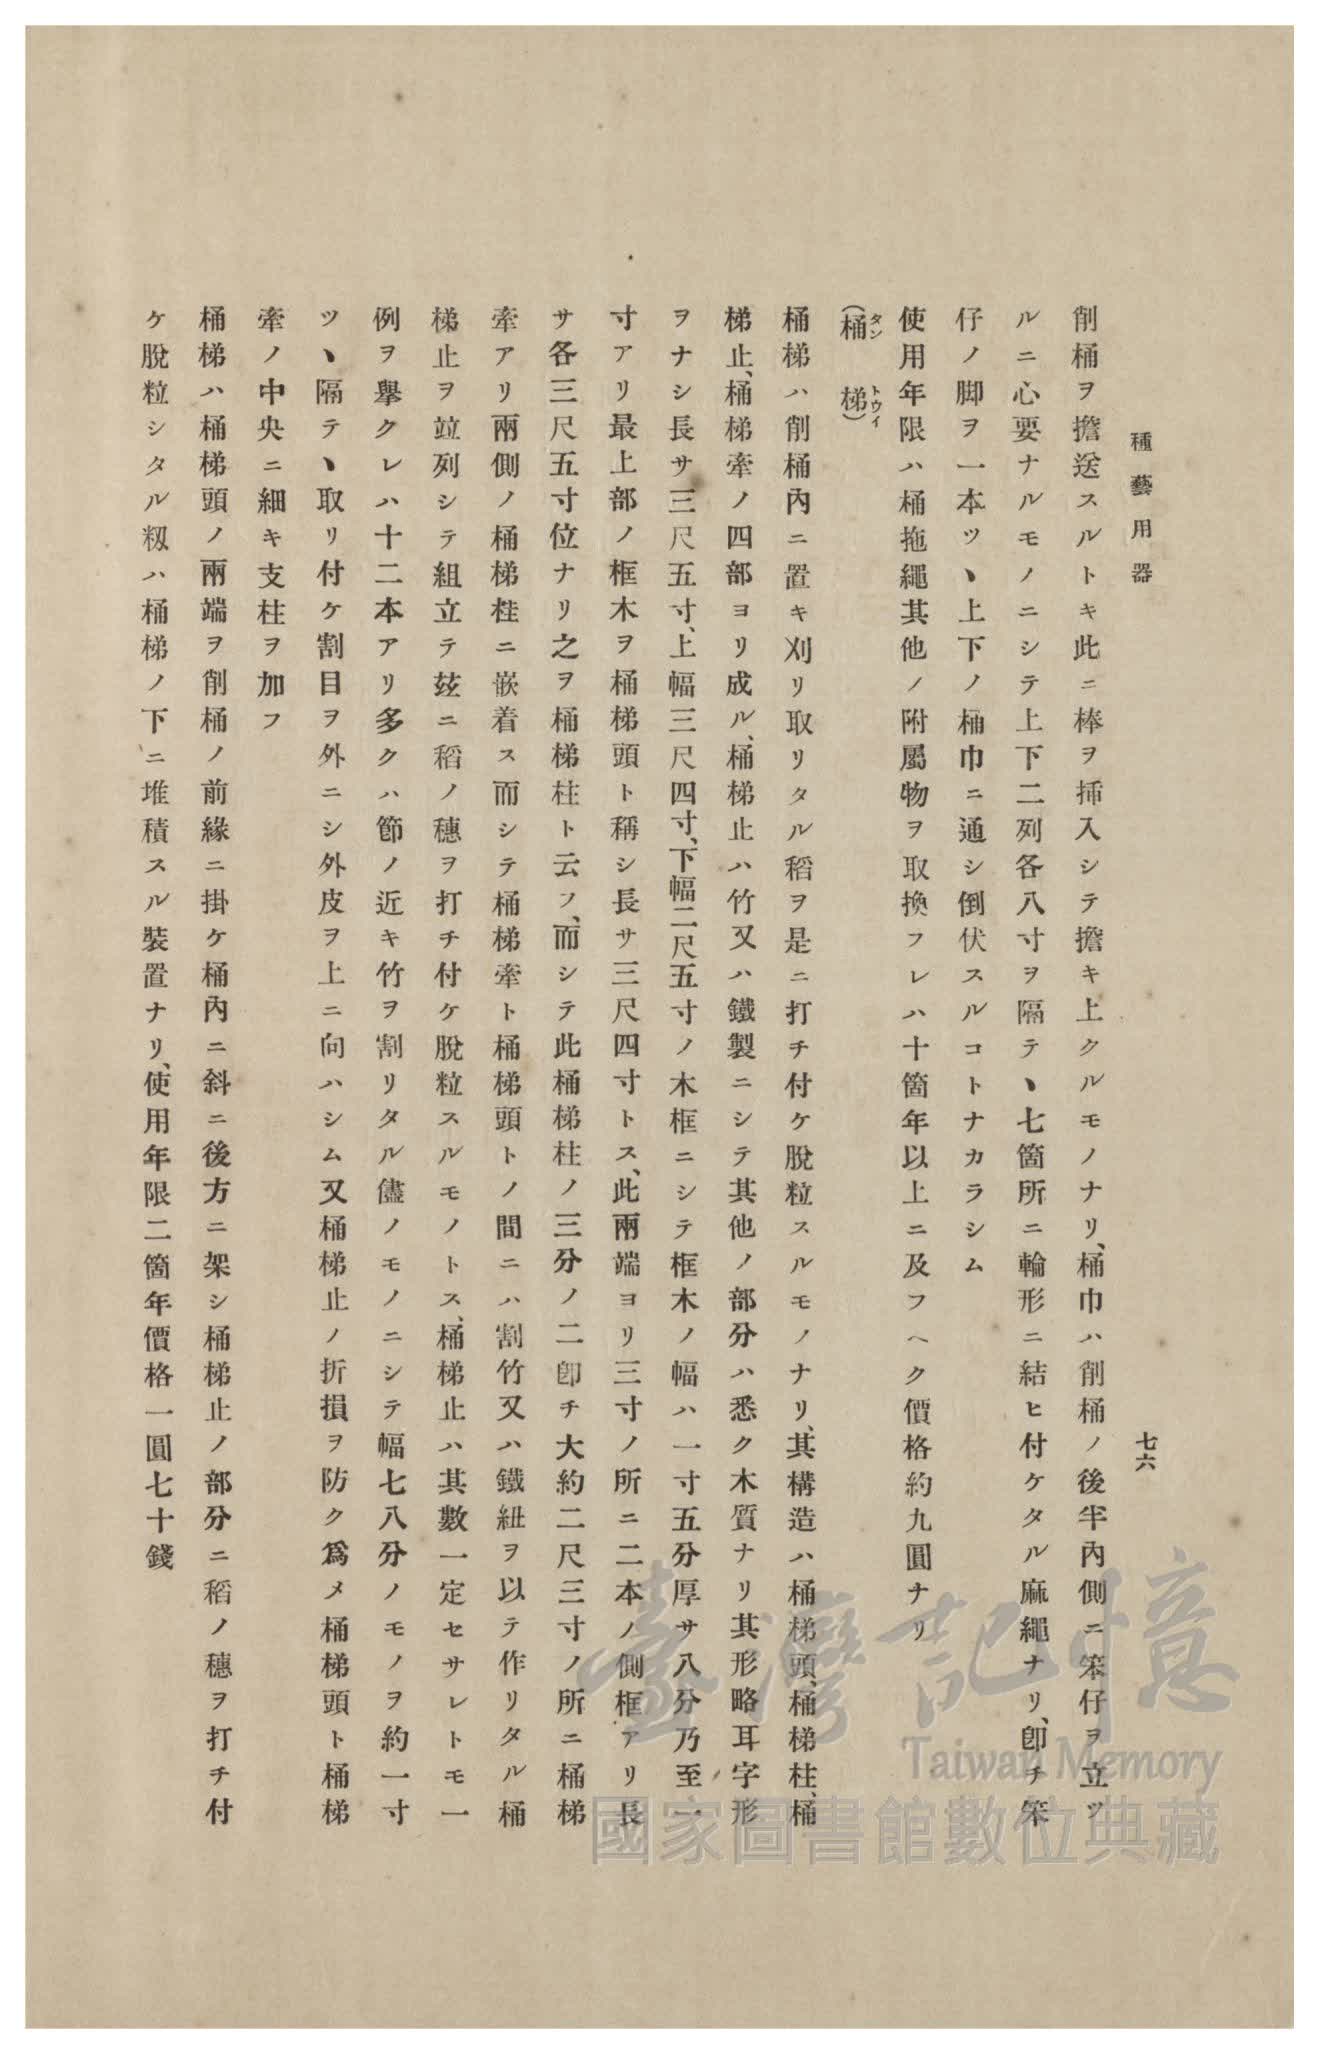 種藝用器
七六
削桶ヲ擔送スルトキ此ニ棒ヲ揷入シテ擔キ上クルモノナリ、桶巾ハ削桶ノ後半內側ニ笨仔ヲ立ツ
ルニ心要ナルモノニシテ上下二列各八寸ヲ隔テヽ七箇所ニ輪形ニ結ヒ付ケタル麻繩ナリ、卽チ笨
仔ノ脚ヲ一本ツヽ上下ノ桶巾ニ通シ倒伏スルコトナカラシム
使用年限ハ桶拖繩其他ノ附屬物ヲ取換フレハ十箇年以上ニ及フヘク價格約九圓ナリ
(桶タン 梯トウイ)
桶梯ハ削桶內ニ置キ刈リ取リタル稻ヲ是ニ打チ付ケ脫粒スルモノナリ、其構造ハ桶梯頭、桶梯柱、桶
梯止、桶梯牽ノ四部ヨリ成ル、桶梯止ハ竹又ハ鐵製ニシテ其他ノ部分ハ悉ク木質ナリ其形略耳字形
ヲナシ長サ三尺五寸、上幅三尺四寸、下幅二尺五寸ノ木框ニシテ框木ノ幅ハ一寸五分厚サ八分乃至一
寸アリ最上部ノ框木ヲ桶梯頭ト稱シ長サ三尺四寸トス、此兩端ヨリ三寸ノ所ニ二本ノ側框アリ長
サ各三尺五寸位ナリ之ヲ桶梯柱ト云フ、而シテ此桶梯柱ノ三分ノ二卽チ大約二尺三寸ノ所ニ桶梯
牽アリ兩側ノ桶梯柱ニ嵌着ス而シテ桶梯牽ト桶梯頭トノ間ニハ割竹又ハ鐵紐ヲ以テ作リタル桶
梯止ヲ竝列シテ組立テ玆ニ稻ノ穗ヲ打チ付ケ脫粒スルモノトス、桶梯止ハ其數一定セサレトモ一
例ヲ擧クレハ十二本アリ多クハ節ノ近キ竹ヲ割リタル儘ノモノニシテ幅七八分ノモノヲ約一寸
ツヽ隔テヽ取リ付ケ割目ヲ外ニシ外皮ヲ上ニ向ハシム又桶梯止ノ折損ヲ防ク爲メ桶梯頭ト桶梯
牽ノ中央ニ細キ支柱ヲ加フ
桶梯ハ桶梯頭ノ兩端ヲ削桶ノ前緣ニ掛ケ桶內ニ斜ニ後方ニ架シ桶梯止ノ部分ニ稻ノ穗ヲ打チ付
ケ脫粒シタル籾ハ桶梯ノ下ニ堆積スル裝置ナリ、使用年限二箇年價格一圓七十錢
臺灣記憶
Taiwan Memory
國家圖書館數位典藏